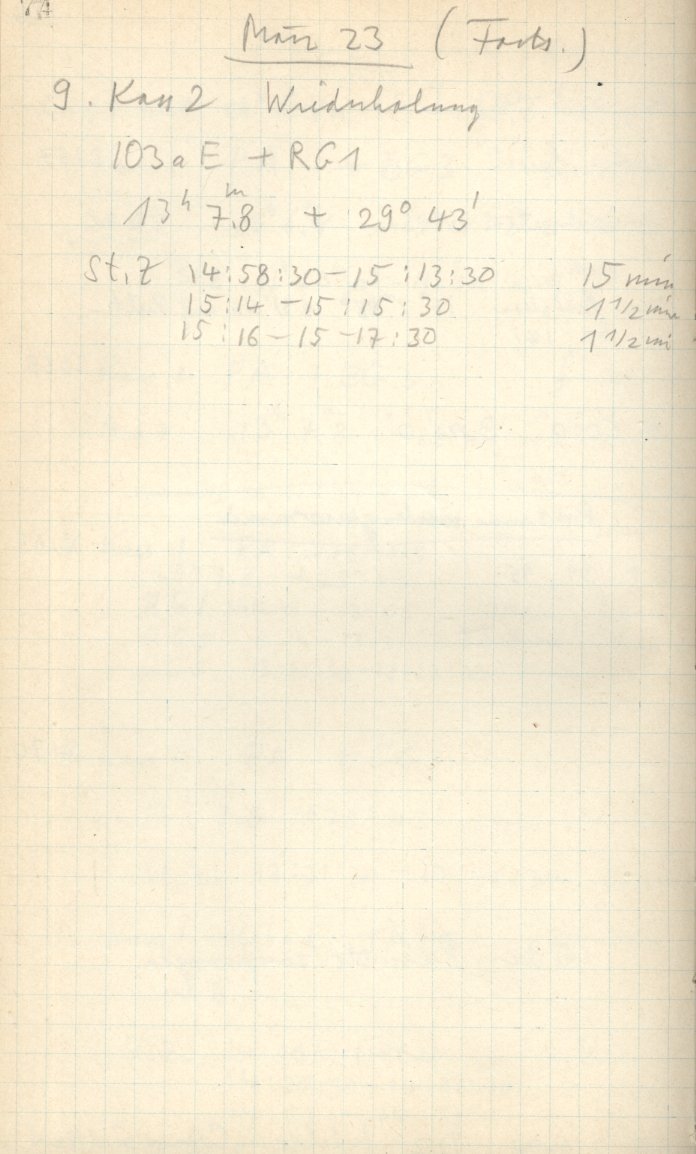 März 23 (Forts.)
9. Kass 2 Wiederholung
103a E + RG1
13h 7m.8 + 29° 43'
St. Z 14:58:30 – 15:13:30 15 min
15:14 – 15:15:30 1 1/2 min
15:16 – 15–17:30 1 1/2 mi